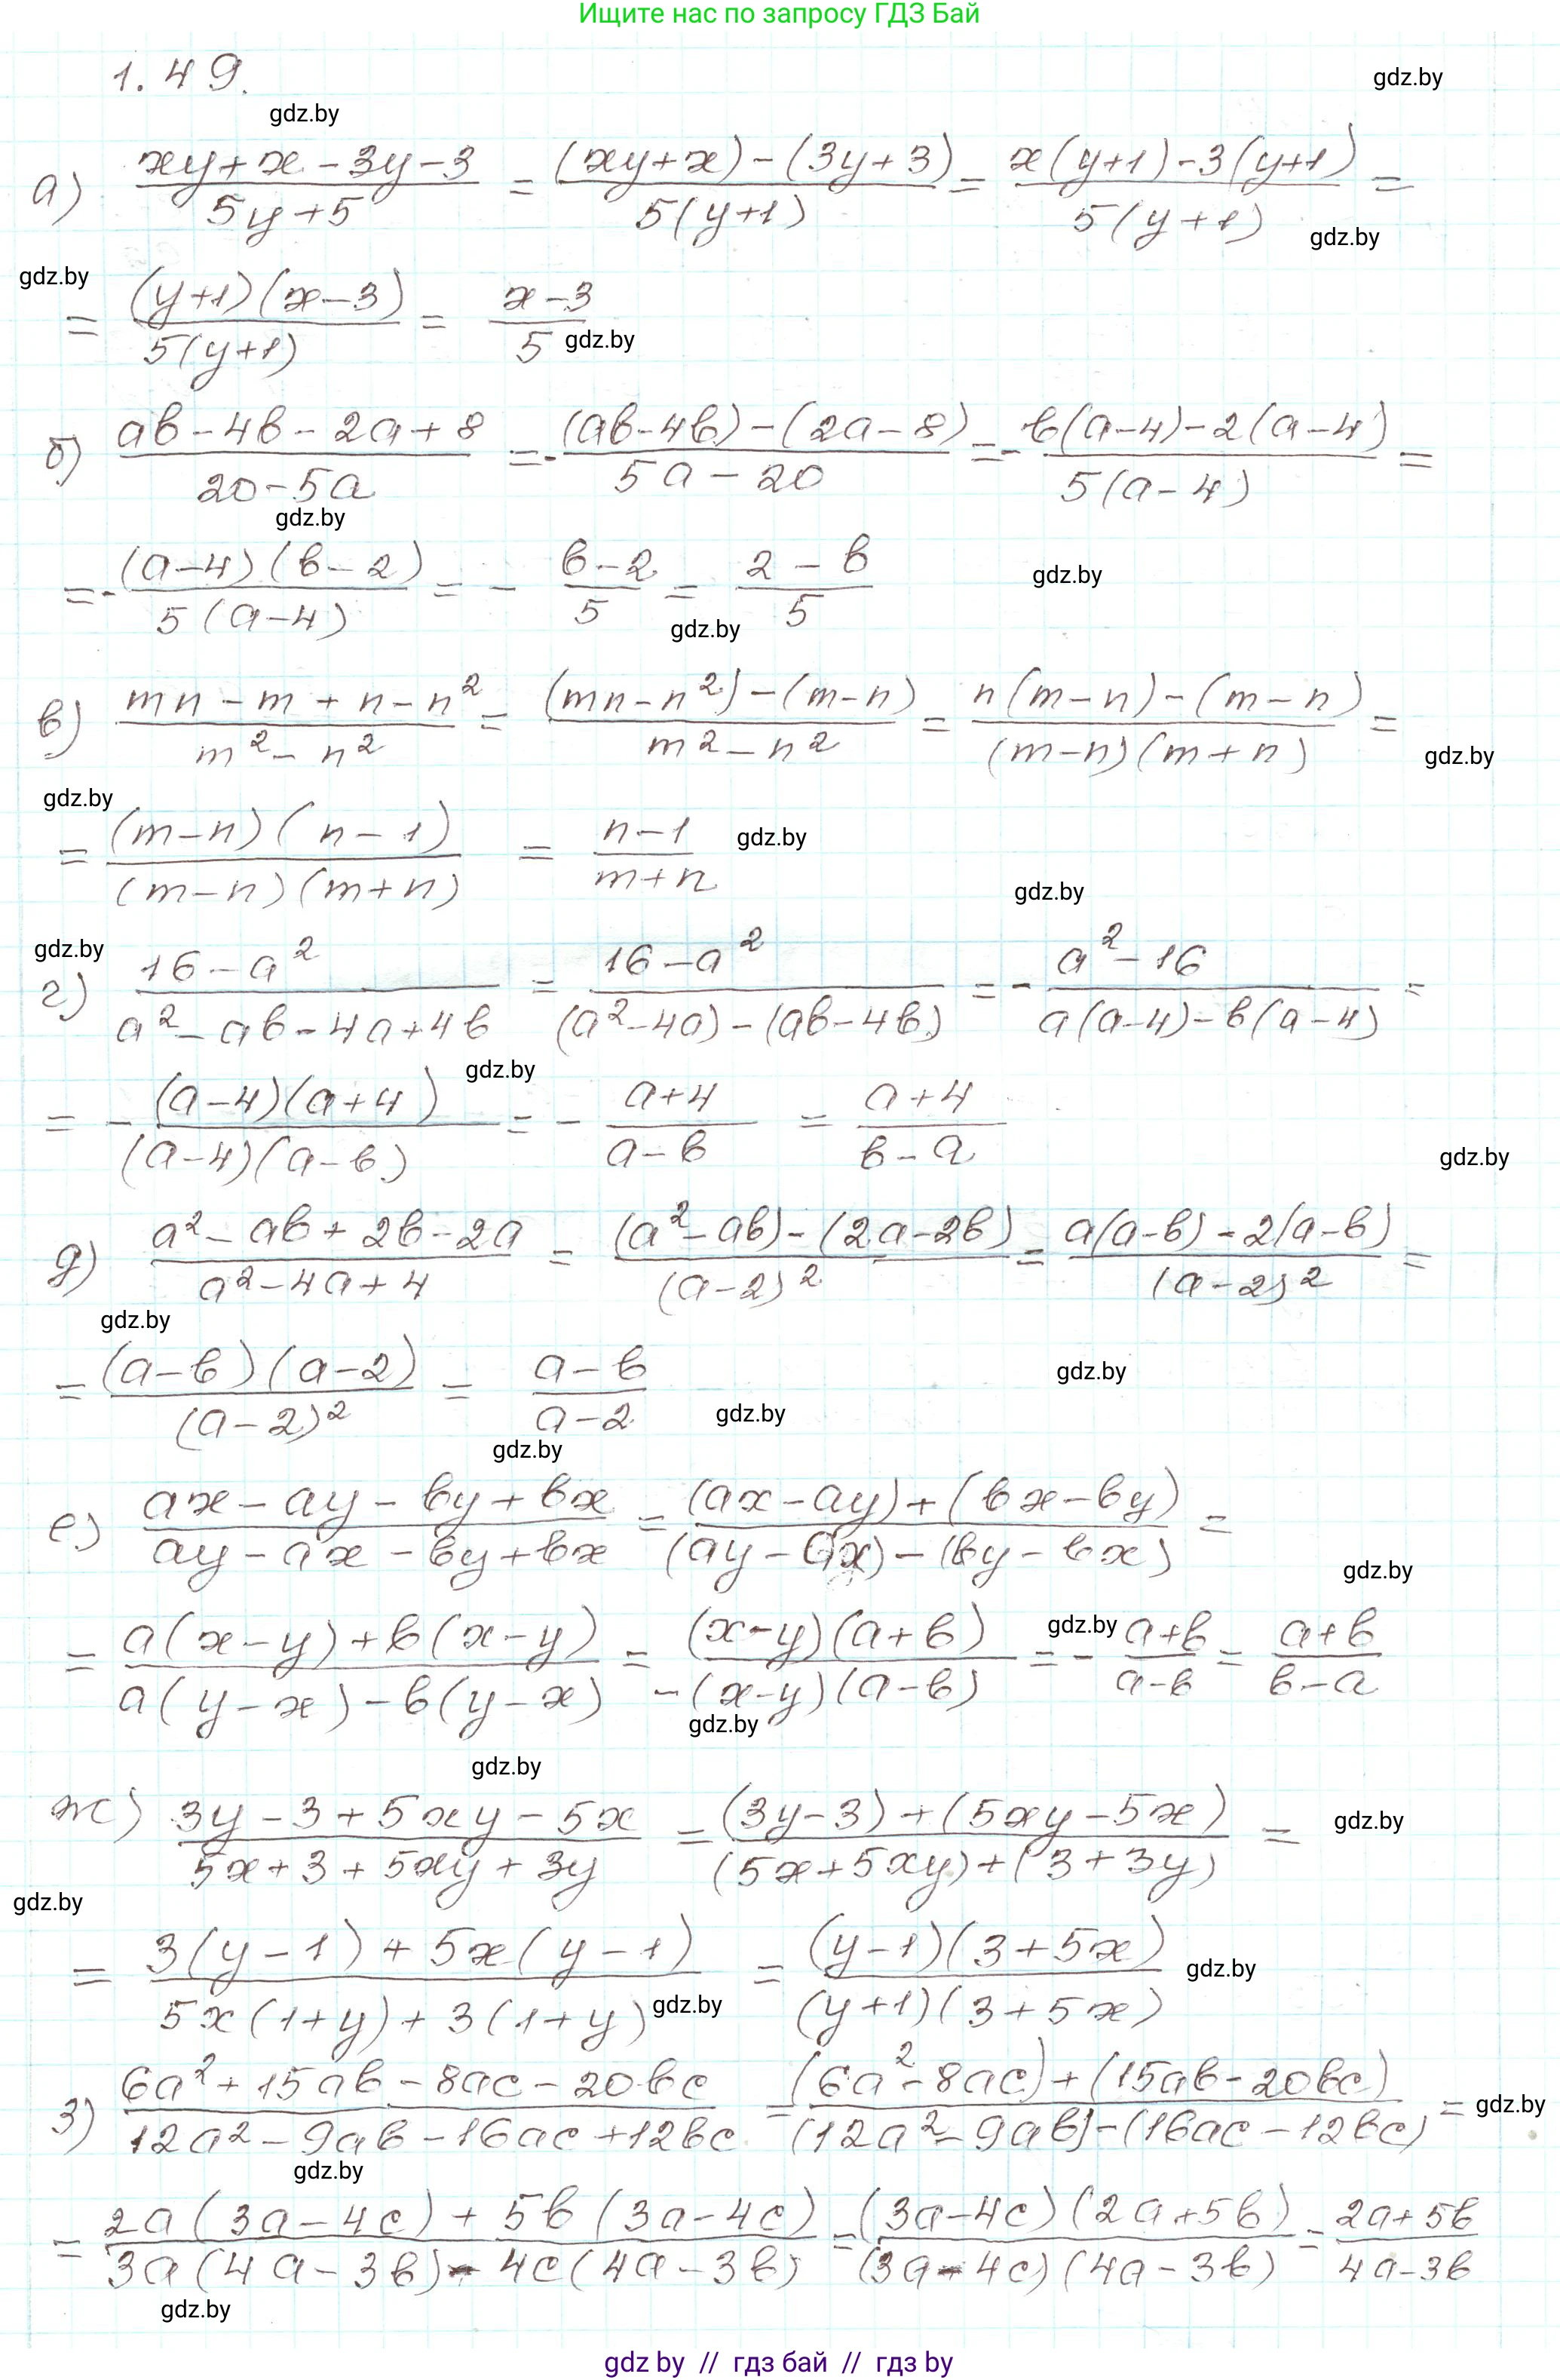 Ищите нас по запросу ГДЗ Бай
1.49.
gdz.by
gdz.by
а) (xy+x-3y-3)/(5y+5) = ((xy+x)-(3y+3))/(5(y+1)) = (x(y+1)-3(y+1))/(5(y+1)) =
gdz.by
gdz.by
= ((y+1)(x-3))/(5(y+1)) = (x-3)/5
gdz.by
б) (ab-4b-2a+8)/(20-5a) = -((ab-4b)-(2a-8))/(5a-20) = -(b(a-4)-2(a-4))/(5(a-4)) =
gdz.by
= -((a-4)(b-2))/(5(a-4)) = -(b-2)/5 = (2-b)/5
gdz.by
gdz.by
в) (mn-m+n-n²)/(m²-n²) = ((mn-n²)-(m-n))/(m²-n²) = (n(m-n)-(m-n))/((m-n)(m+n)) =
gdz.by
gdz.by
= ((m-n)(n-1))/((m-n)(m+n)) = (n-1)/(m+n)
gdz.by
gdz.by
gdz.by
г) (16-a²)/(a²-ab-4a+4b) = (16-a²)/((a²-4a)-(ab-4b)) = -(a²-16)/(a(a-4)-b(a-4)) =
gdz.by
= -((a-4)(a+4))/((a-4)(a-b)) = -(a+4)/(a-b) = (a+4)/(b-a)
gdz.by
д) (a²-ab+2b-2a)/(a²-4a+4) = ((a²-ab)-(2a-2b))/((a-2)²) = (a(a-b)-2(a-b))/((a-2)²) =
gdz.by
= ((a-b)(a-2))/((a-2)²) = (a-b)/(a-2)
gdz.by
gdz.by
gdz.by
е) (ax-ay-by+bx)/(ay-ax-by+bx) = ((ax-ay)+(bx-by))/((ay-ax)-(by-bx)) =
gdz.by
= (a(x-y)+b(x-y))/(a(y-x)-b(y-x)) = ((x-y)(a+b))/(-(x-y)(a-b)) = -(a+b)/(a-b) = (a+b)/(b-a)
gdz.by
gdz.by
gdz.by
ж) (3y-3+5xy-5x)/(5x+3+5xy+3y) = ((3y-3)+(5xy-5x))/((5x+5xy)+(3+3y)) =
gdz.by
gdz.by
= (3(y-1)+5x(y-1))/(5x(1+y)+3(1+y)) = ((y-1)(3+5x))/((y+1)(3+5x))
gdz.by
gdz.by
з) (6a²+15ab-8ac-20bc)/(12a²-9ab-16ac+12bc) = ((6a²-8ac)+(15ab-20bc))/((12a²-9ab)-(16ac-12bc)) =
gdz.by
gdz.by
= (2a(3a-4c)+5b(3a-4c))/(3a(4a-3b)-4c(4a-3b)) = ((3a-4c)(2a+5b))/((3a-4c)(4a-3b)) = (2a+5b)/(4a-3b)
gdz.by
gdz by // гдз бай // gdz by